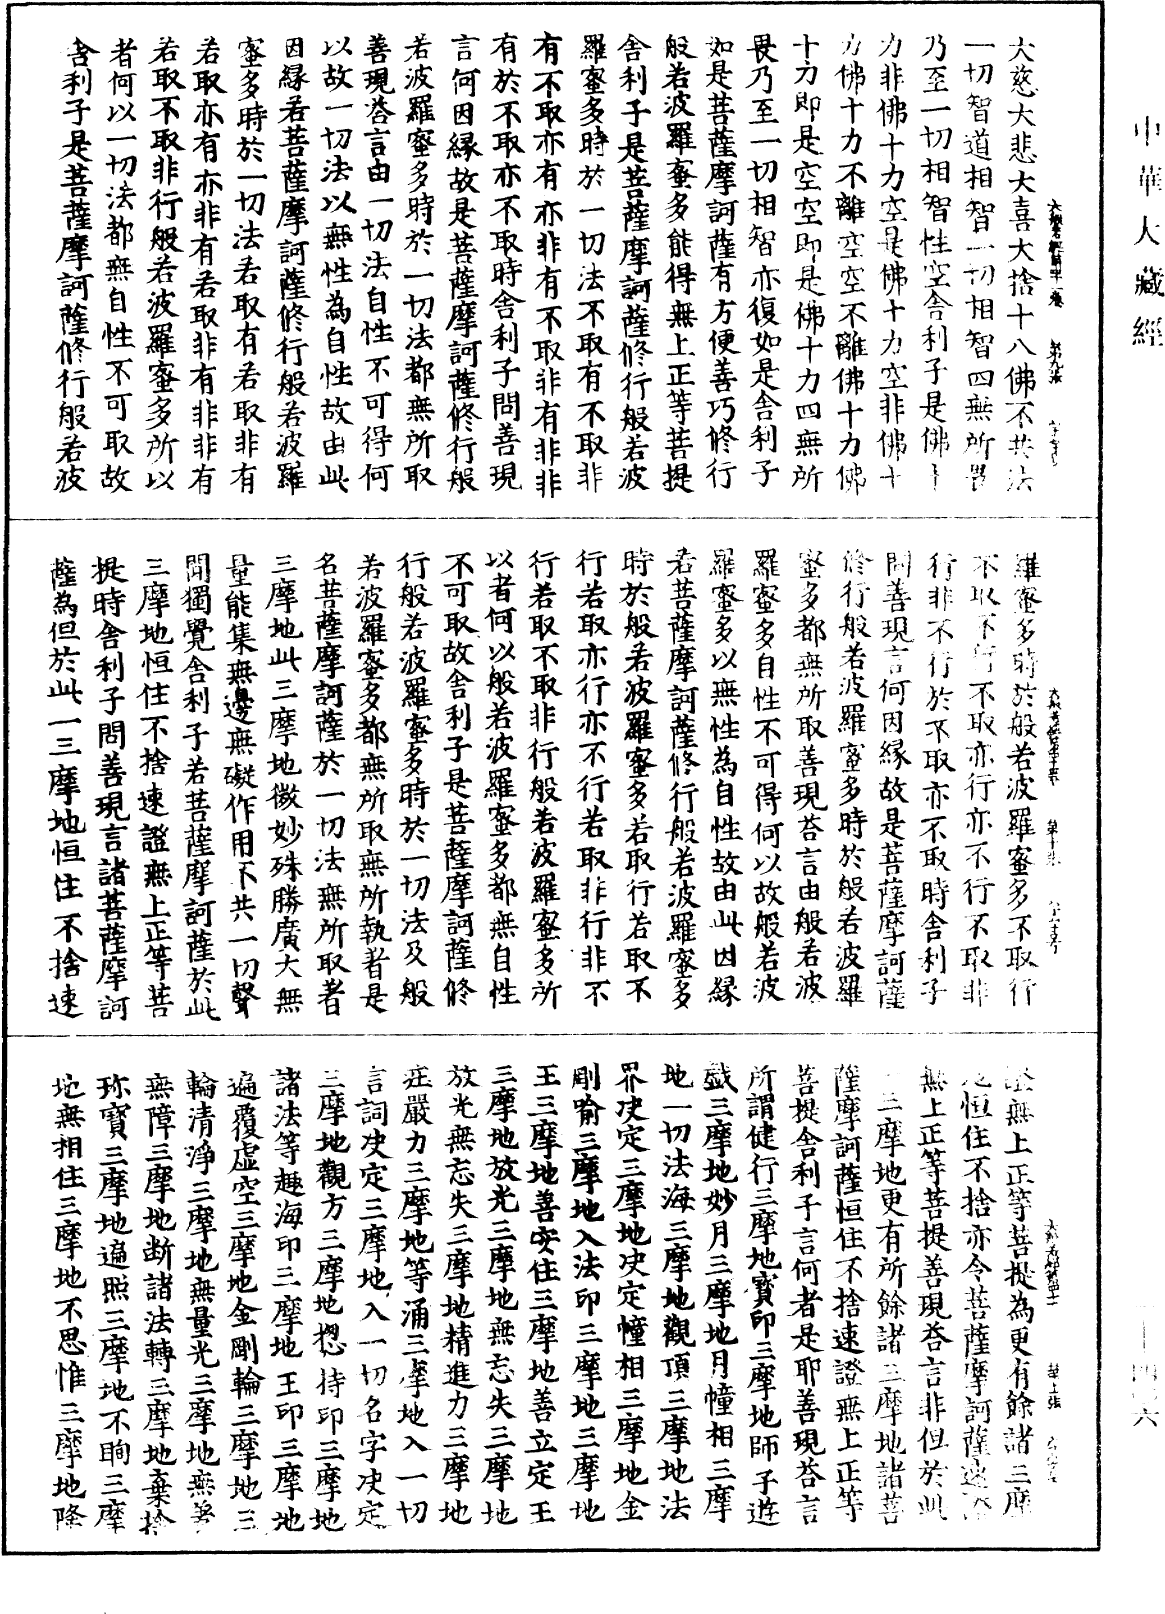 中華大藏經
大慈大悲大喜大捨十八佛不共法
一切智道相智一切相智四無所畏
乃至一切相智性空舍利子是佛十
力非佛十力空是佛十力空非佛十
力佛十力不離空空不離佛十力佛
十力即是空空即是佛十力四無所
畏乃至一切相智亦復如是舍利子
如是菩薩摩訶薩有方便善巧修行
般若波羅蜜多能得無上正等菩提
舍利子是菩薩摩訶薩修行般若波
羅蜜多時於一切法不取有不取非
有不取亦有亦非有不取非有非非
有於不取亦不取時舍利子問善現
言何因緣故是菩薩摩訶薩修行般
若波羅蜜多時於一切法都無所取
善現荅言由一切法自性不可得何
以故一切法以無性為自性故由此
因緣若菩薩摩訶薩修行般若波羅
蜜多時於一切法若取有若取非有
若取亦有亦非有若取非有非非有
若取不取非行般若波羅蜜多所以
者何以一切法都無自性不可取故
舍利子是菩薩摩訶薩修行般若波
羅蜜多時於般若波羅蜜多不取行
不取不行不取亦行亦不行不取非
行非不行於不取亦不取時舍利子
問善現言何因緣故是菩薩摩訶薩
修行般若波羅蜜多時於般若波羅
蜜多都無所取善現荅言由般若波
羅蜜多自性不可得何以故般若波
羅蜜多以無性為自性故由此因緣
若菩薩摩訶薩修行般若波羅蜜多
時於般若波羅蜜多若取行若取不
行若取亦行亦不行若取非行非不
行若取不取非行般若波羅蜜多所
以者何以般若波羅蜜多都無自性
不可取故舍利子是菩薩摩訶薩修
行般若波羅蜜多時於一切法及般
若波羅蜜多都無所取無所執者是
名菩薩摩訶薩於一切法無所取著
三摩地此三摩地微妙殊勝廣大無
量能集無邊無礙作用不共一切聲
聞獨覺舍利子若菩薩摩訶薩於此
三摩地恒住不捨速證無上正等菩
提時舍利子問善現言諸菩薩摩訶
薩為但於此一三摩地恒住不捨速
證無上正等菩提為更有餘諸三摩
地恒住不捨亦令菩薩摩訶薩速證
無上正等菩提善現荅言非但於此
一三摩地更有所餘諸三摩地諸菩
薩摩訶薩恒住不捨速證無上正等
菩提舍利子言何者是耶善現荅言
所謂健行三摩地寶印三摩地師子遊
戲三摩地妙月三摩地月幢相三摩
地一切法海三摩地觀頂三摩地法
界决定三摩地决定幢相三摩地金
剛喻三摩地入法印三摩地三摩地
王三摩地善安住三摩地善立定王
三摩地放光三摩地無忘失三摩地
放光無忘失三摩地精進力三摩地
莊嚴力三摩地等涌三摩地入一切
言詞决定三摩地入一切名字决定
三摩地觀方三摩地揔持印三摩地
諸法等趣海印三摩地王印三摩地
遍覆虚空三摩地金剛輪三摩地三
輪清淨三摩地無量光三摩地無著
無障三摩地斷諸法轉三摩地棄捨
珎寶三摩地遍照三摩地不眴三摩
地無相住三摩地不思惟三摩地降